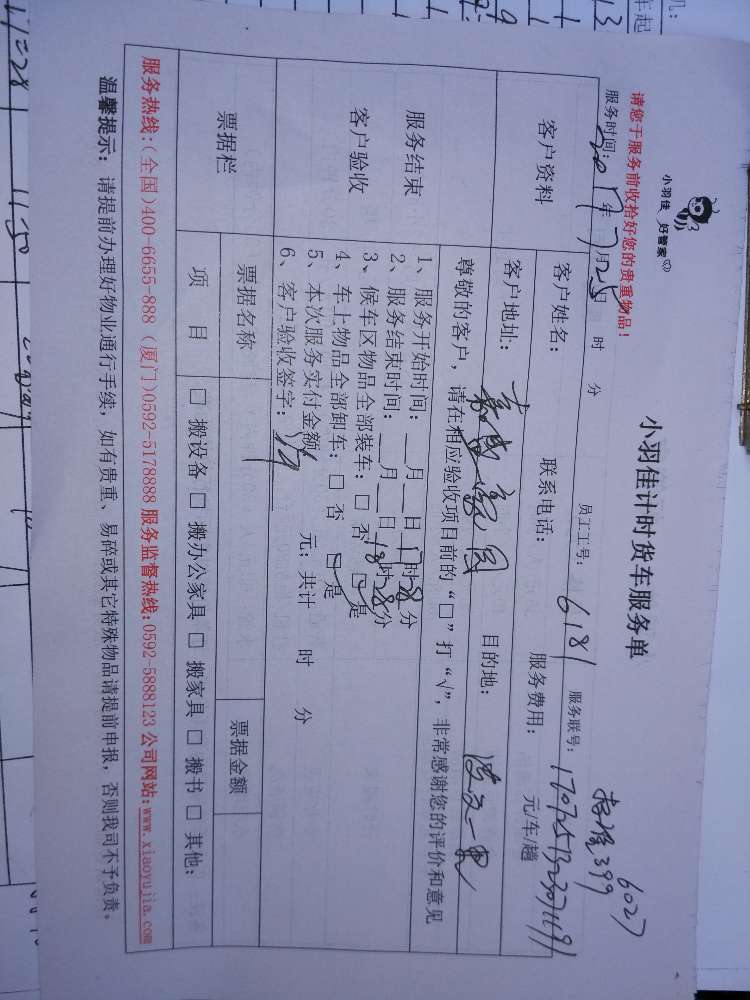 小羽佳 好管家
小羽佳计时货车服务单
6027
399
请您于服务前收拾好您的贵重物品！
服务时间：2017年7月25日 时 分 员工工号：6181 服务联号：
客户资料
客户姓名： 联系电话： 服务费用： 元/车/趟
客户地址： 目的地：
尊敬的客户，请在相应验收项目前的“□”打“√”，非常感谢您的评价和意见
服务结束
客户验收
1、服务开始时间：__月__日17时28分
2、服务结束时间：__月__日18时28分
3、候车区物品全部装车：□ 否 ☑ 是
4、车上物品全部卸车：□ 否 ☑ 是
5、本次服务实付金额 元；共计 时 分
6、客户验收签字：
票据栏
票据名称 票据金额
项 目 □ 搬设备 □ 搬办公家具 □ 搬家具 □ 搬书 □ 其他：
服务热线:(全国)400-6655-888 (厦门)0592-5178888 服务监督热线:0592-5888123 公司网站:www.xiaoyujia.com
温馨提示：请提前办理好物业通行手续，如有贵重、易碎或其它特殊物品请提前申报，否则我司不予负责。